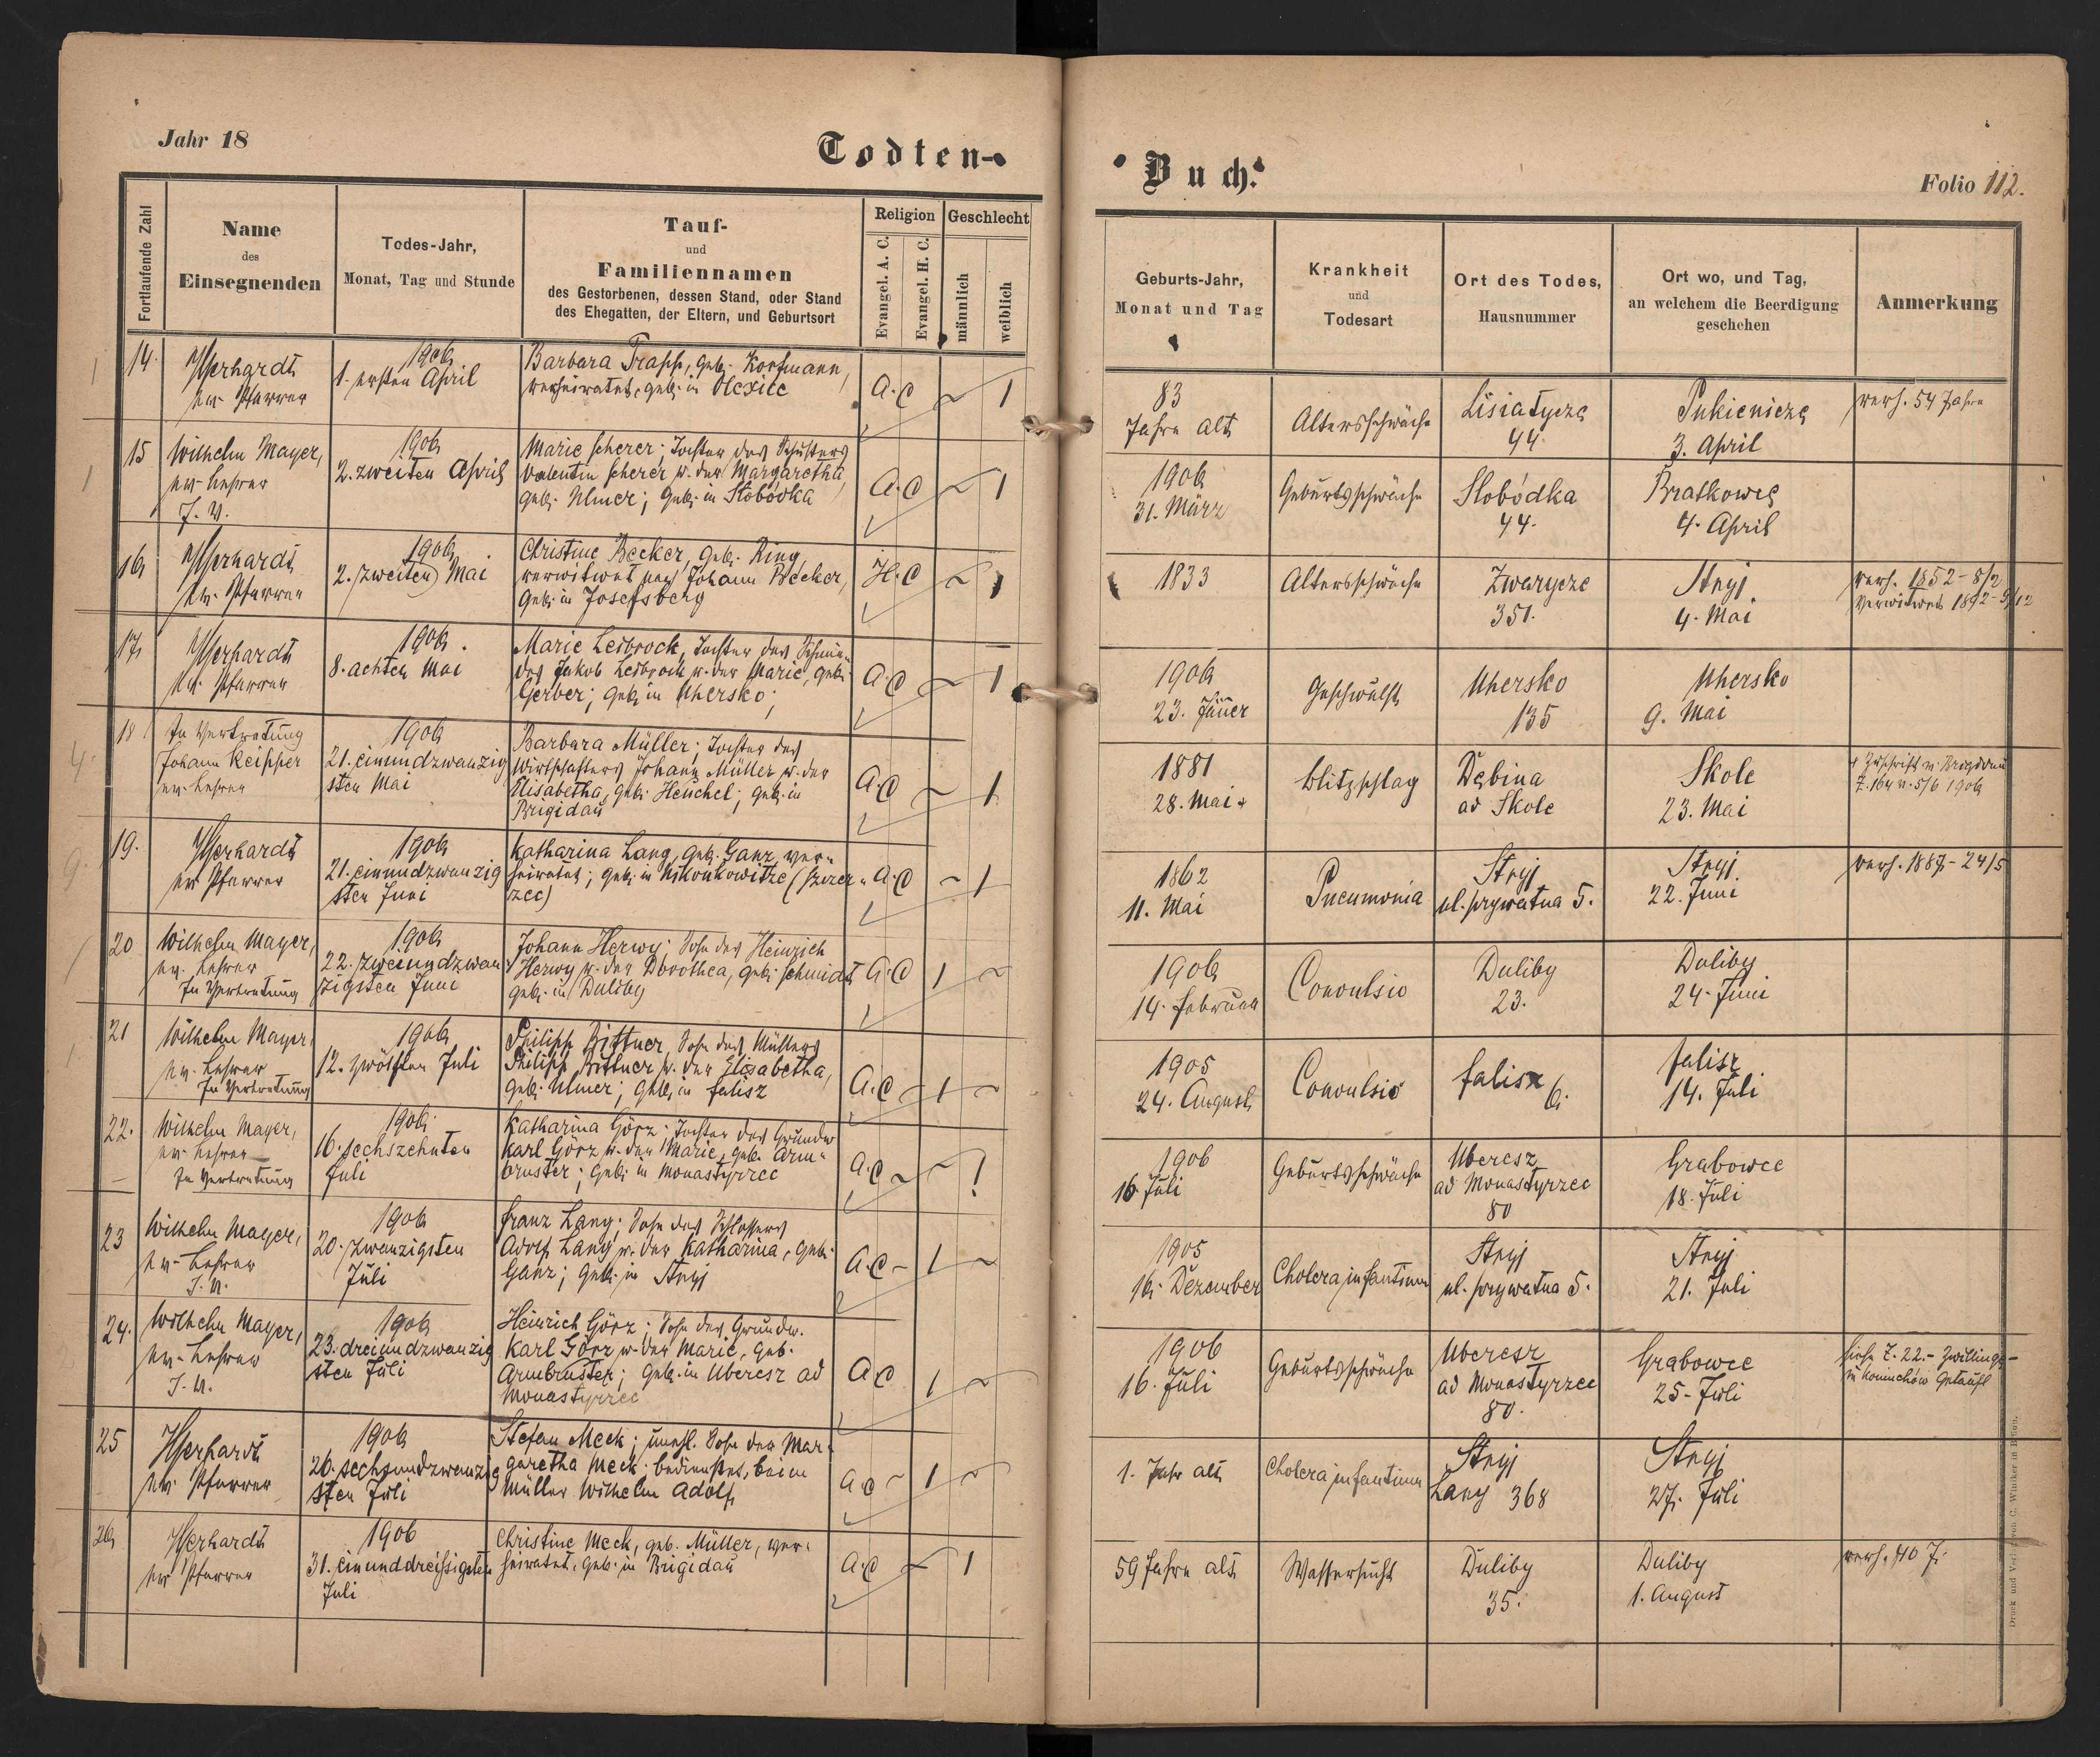 Jahr 18
Todten-
Buch.
Folio 112.
Fortlaufende Zahl
Name
des
Einsegnenden
Todes-Jahr,
Monat, Tag und Stunde
Tauf-
und
Familiennamen
des Gestorbenen, dessen Stand, oder Stand
des Ehegatten, der Eltern, und Geburtsort
Religion
Evangel. A. C.
Evangel. H. C.
Geschlecht
männlich
weiblich
Geburts-Jahr,
Monat und Tag
Krankheit
und
Todesart
Ort des Todes,
Hausnummer
Ort wo, und Tag,
an welchem die Beerdigung
geschehen
Anmerkung
14.
ev. Pfarrer
1906
1. ersten April
Barbara Trapp, geb. Korfmann,
verheiratet, geb. in Olexice
A.C
~ 1
83
Jahre alt
Altersschwäche
Lisiatycze
44.
Pukienicze
3. April
verh. 54 Jahre
15
Wilhelm Mayer,
ev. Lehrer
J. V.
1906
2. zweiten April
Marie Scherer; Tochter des Schusters
Valentin Scherer u. der Margaretha,
geb. Ulmer; geb. in Slobódka
A.C
~ 1
1906
31. März
Geburtsschwäche
Slobódka
44.
Bratkowce
4. April
16
ev. Pfarrer
1906
2. zweiten Mai
Christine Becker, geb. Ring
verwitwet nach Johann Becker,
geb. in Josefsberg
H.C
~ 1
1833
Altersschwäche
Zwarycze
351.
Stryj
4. Mai
verh. 1852 - 8/2
verwitwet 1892 -
17.
ev. Pfarrer
1906
8. achten Mai
Marie Leibrock, Tochter des Schmie-
des Jakob Leibrock u. der Marie, geb.
Gerber; geb. in Uhersko;
A.C
~ 1
1906
23. Jäner
Geschwulst
Uhersko
135
Uhersko
9. Mai
18
In Vertretung
Johann Keipper
ev. Lehrer
1906
21. einundzwanzig
sten Mai
Barbara Müller; Tochter des
Wirtschafters Johann Müller u. der
Elisabetha, geb. Heuchel; geb. in
Brigidau
A.C
~ 1
1881
28. Mai +
Blitzschlag
Dębina
ad Skole
Skole
23. Mai
+ Zuschrift v. Brigidau
Z. 164 v. 5/6 1906
19.
ev. Pfarrer
1906
21. einundzwanzig
sten Juni
Katharina Lang, geb. Ganz, ver-
heiratet; geb. in Nikonkowitze (Szczer-
zec)
A.C
~ 1
1862
11. Mai
Pneumonia
Stryj
ul. prywatna 5.
Stryj
22. Juni
verh. 1887 - 24/5
20
Wilhelm Mayer,
ev. Lehrer
In Vertretung
1906
22. zweiundzwan
zigsten Juni
Johann Herwy; Sohn des Heinrich
Herwy u. der Dorothea, geb. Schmidt
geb. in Duliby
A.C
1 ~
1906
14. Februar
Convulsio
Duliby
23.
Duliby
24. Juni
21
Wilhelm Mayer,
ev. Lehrer
In Vertretung
1906
12. zwölften Juli
Philipp Bittner, Sohn des Müllers
Philipp Bittner u. der Elisabetha,
geb. Ulmer; geb. in Falisz
A.C
1 ~
1905
24. August
Convulsio
Falisz 6.
Falisz
14. Juli
22.
Wilhelm Mayer,
ev. Lehrer
In Vertretung
1906
16. sechszehnten
Juli
Katharina Görz; Tochter des Grundw
Karl Görz u. der Marie, geb. Arm-
bruster; geb. in Monastyrzec
A.C
~ 1
1906
16. Juli
Geburtsschwäche
Uberesz
ad Monastyrzec
80
Grabowce
18. Juli
23
Wilhelm Mayer,
ev. Lehrer
J. V.
1906
20. zwanzigsten
Juli
Franz Lang; Sohn des Schlossers
Adolf Lang u. der Katharina, geb.
Ganz; geb. in Stryj
A.C
1 ~
1905
16. Dezember
Cholera infantium
Stryj
ul. prywatna 5.
Stryj
21. Juli
24.
Wilhelm Mayer,
ev. Lehrer
J. V.
1906
23. dreiundzwanzig
sten Juli
Heinrich Görz; Sohn des Grundw.
Karl Görz u. der Marie, geb.
Armbruster; geb. in Uberesz ad
Monastyrzec
A.C
1 ~
1906
16. Juli
Geburtsschwäche
Uberesz
ad Monastyrzec
80.
Grabowce
25. Juli
Siehe Z. 22. - Zwillinge -
in Koniuchów getauft
25
ev. Pfarrer
1906
26. sechsundzwanzig
sten Juli
Stefan Meck; unehl. Sohn der Mar-
garetha Meck; bedienstet, beim
Müller Wilhelm Adolf
A.C
1 ~
1. Jahr alt
Cholera infantium
Stryj
Lany 368
Stryj
27. Juli
26
ev. Pfarrer
1906
31. einunddreißigsten
Juli
Christine Meck, geb. Müller, ver-
heiratet, geb. in Brigidau
A.C
~ 1
59 Jahre alt
Wassersucht
Duliby
35.
Duliby
1. August
verh. 40 J.
Druck und Verlag von C. Winiker in Brünn.